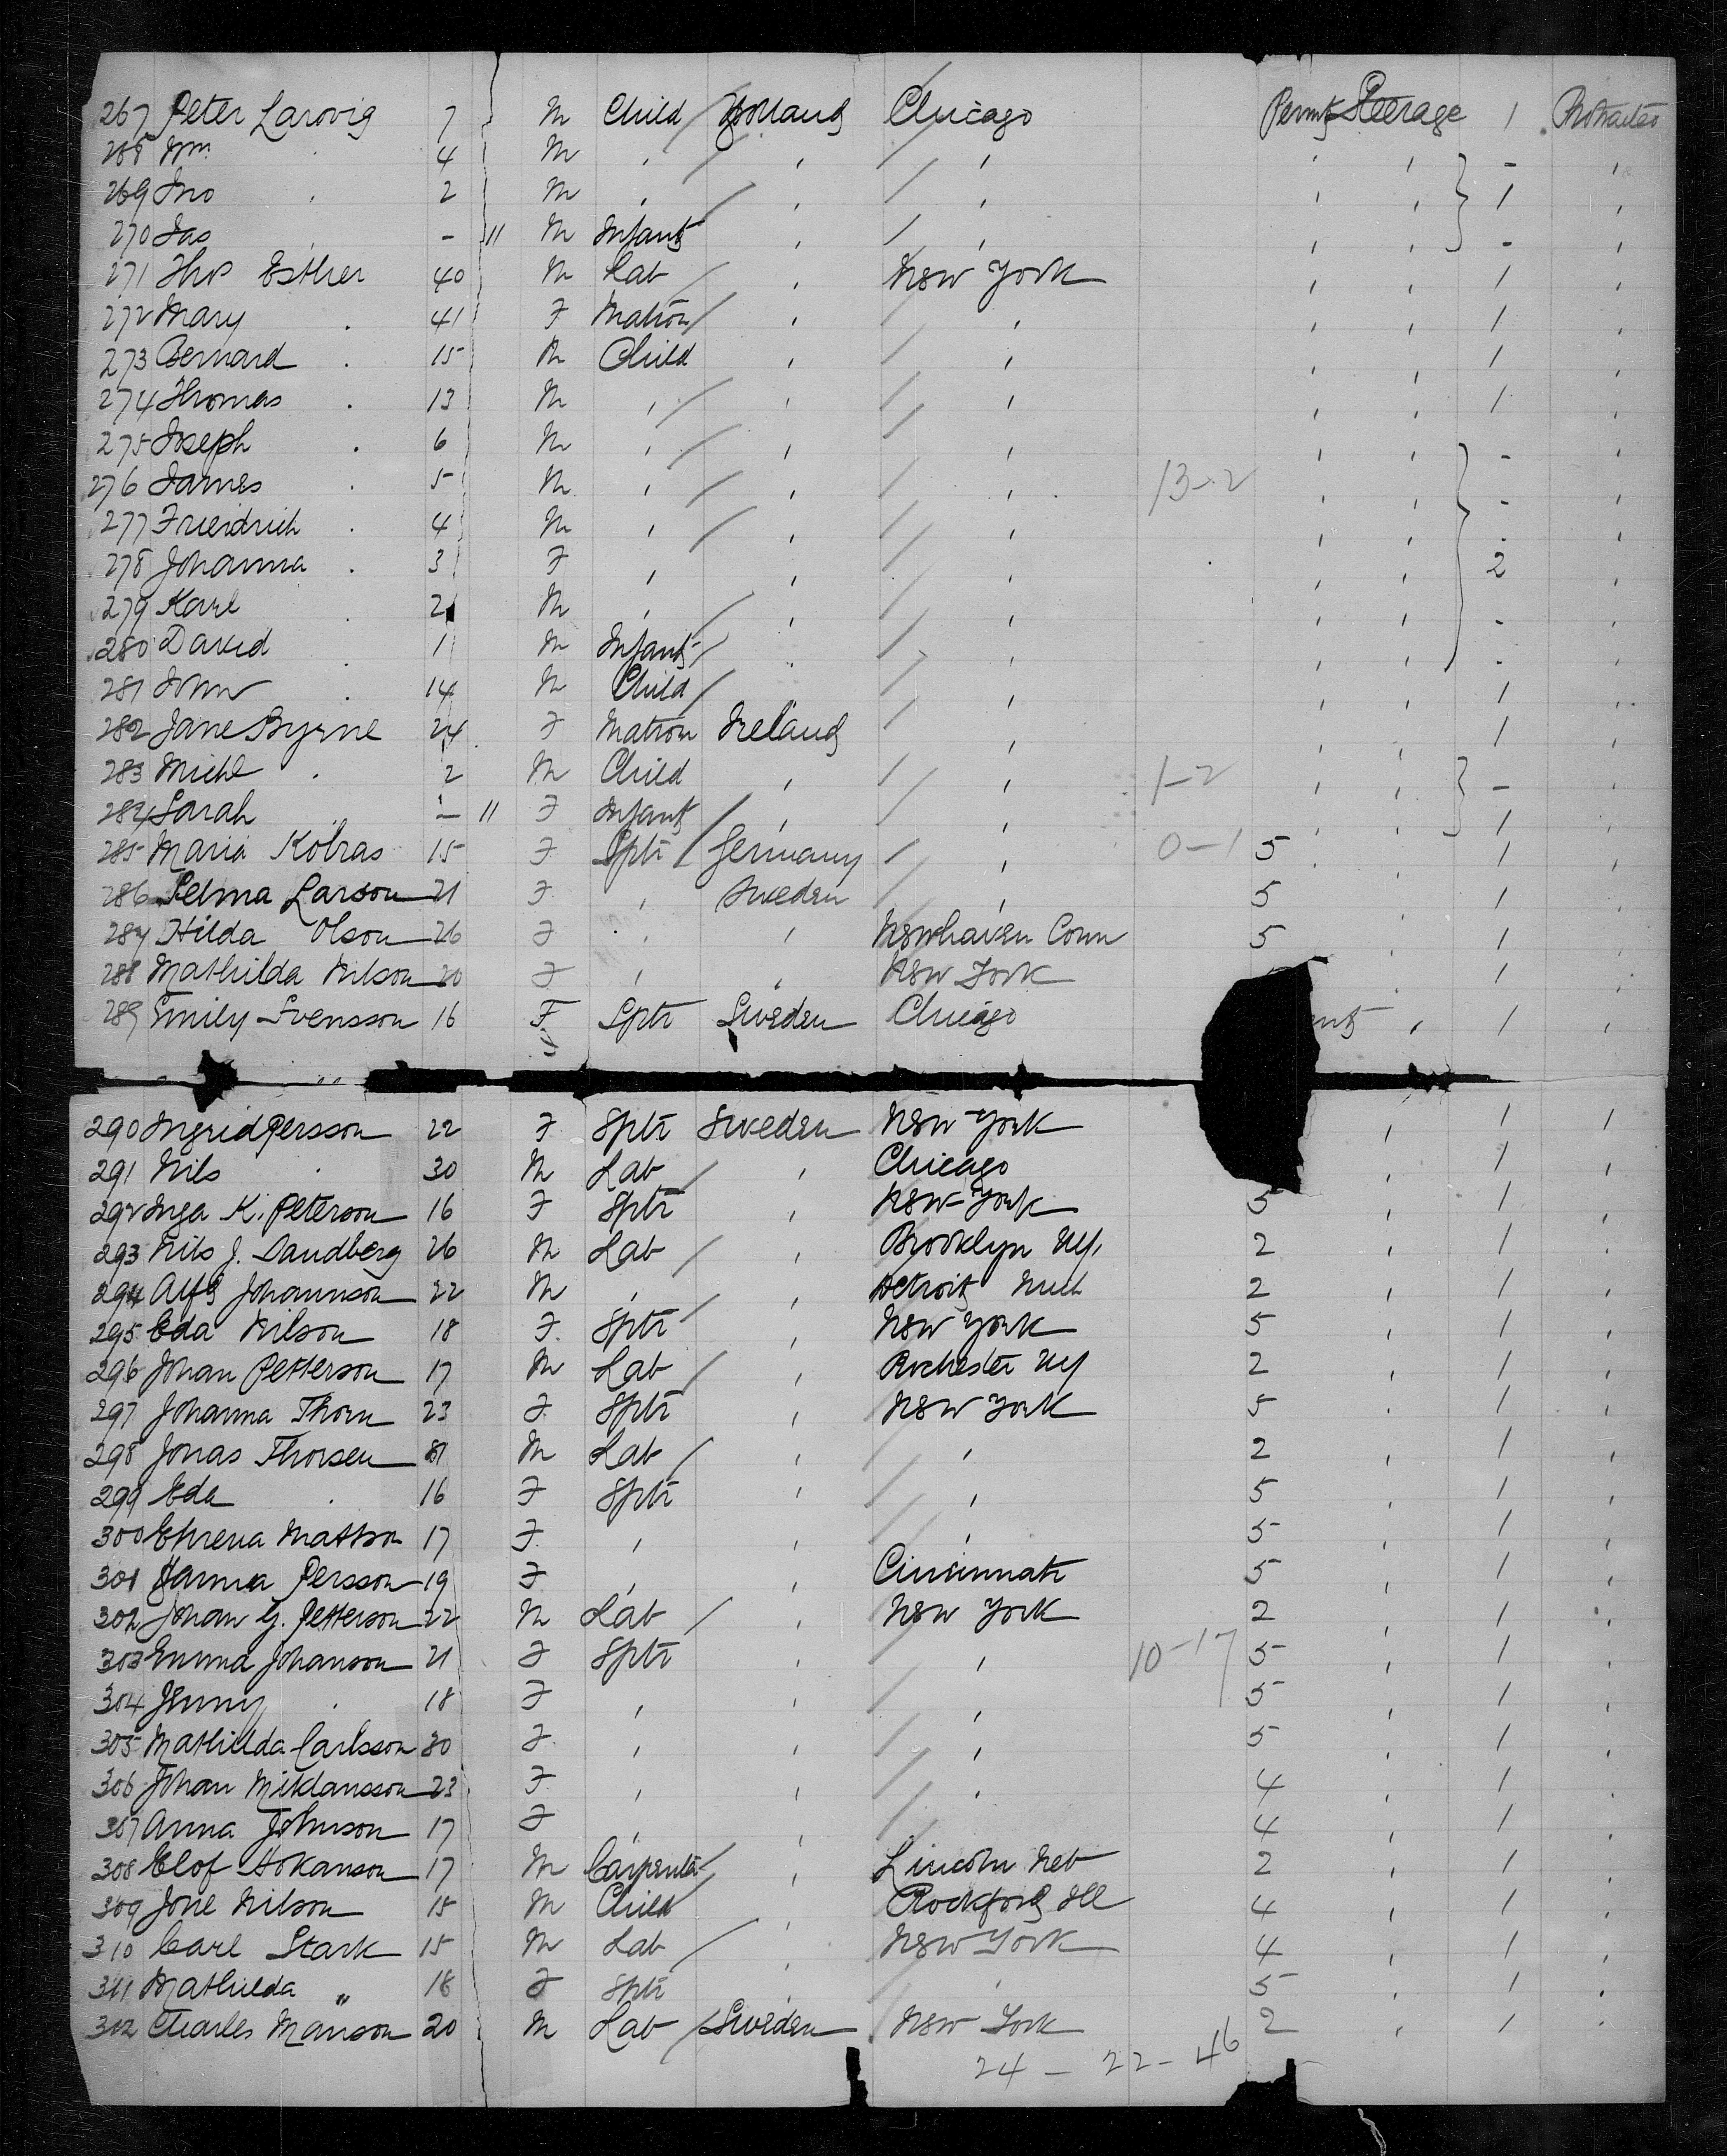 267 Peter Larovig 7 M Child Holland Chicago Permt Steerage 1 Protracted
268 Wm 4 M , , , , , -
269 Jno 2 M , , , , , 1 ,
270 Jas - 11 M Infant , , , , - ,
271 Thos Esther 40 M Lab , New York , , 1 ,
272 Mary . 41 F Matron , , , , 1 ,
273 Bernard . 15 M Child , , , , 1 ,
274 Thomas . 13 M , , , , , 1 ,
275 Joseph . 6 M , , , , , - ,
276 James . 5 M , , , 13-2 , , - ,
277 Friedrich . 4 M , , , , , - ,
278 Johanna . 3 F , , , , , 2 ,
279 Karl . 2 M , , , , , - ,
280 David . 1 M Infant , , , , - ,
281 John . 14 M Child , , , 1 ,
282 Jane Byrne 24 F Matron Ireland , , , 1 ,
283 Michl . 2 M Child , , 1-2 , , - ,
284 Sarah - 11 F Infant , , , , 1 ,
285 Maria Kobras 15 F Sptr Germany , 0-1 5 , 1 ,
286 Selma Larson 21 F , Sweden , 5 , 1 ,
287 Hilda Olson 26 F , , Newhaven Conn 5 , 1 ,
288 Mathilda Nilson 20 F , , New York 1 ,
289 Emily Svensson 16 F Sptr Sweden Chicago , 1 ,
290 Ingrid Persson 22 F Sptr Sweden New York , 1 1
291 Nils . 30 M Lab , Chicago , 1 ,
292 Inga K. Peterson 16 F Sptr , New York 5 , 1 ,
293 Nils J. Sandberg 26 M Lab , Brooklyn NY, 2 , 1 ,
294 Alfd Johannson 22 M , , Detroit Mich 2 , 1 ,
295 Eda Nilson 18 F. Sptr , New York 5 , 1 ,
296 Johan Petterson 17 M Lab , Rochester NY 2 , 1 ,
297 Johanna Thorn 23 F. Sptr , New York 5 , 1 ,
298 Jonas Thorsen M Lab , , 2 , 1 ,
299 Eda . 16 F Sptr , , 5 , 1 ,
300 Mattson 17 F. , , , 5 , 1 ,
301 Hanna Persson 19 F , , Cincinnati 5 , 1 ,
302 Johan G. Petterson 22 M Lab , New York 2 , 1 ,
303 Emma Johanson 21 F Sptr , , 10-17 5 , 1 ,
304 Jenny . 18 F , , , 5 , 1 ,
305 Mathilda Carlsson 30 F. , , , 5 , 1 ,
306 Johan 23 F. , , , 4 , 1 ,
307 Anna Johnson 17 F , , 4 , 1 ,
308 Elof Hokanson 17 M Carpenter , Lincoln Neb 2 , 1 ,
309 Nilson 15 M Child , Rockford Ill 4 , 1 ,
310 Carl Stark 15 M Lab , New York 4 , 1 ,
311 Mathilda " 18 F Sptr , , 5 , 1 ,
312 Charles Manson 20 M Lab Sweden New York 2 , 1 ,
24 - 22 - 46